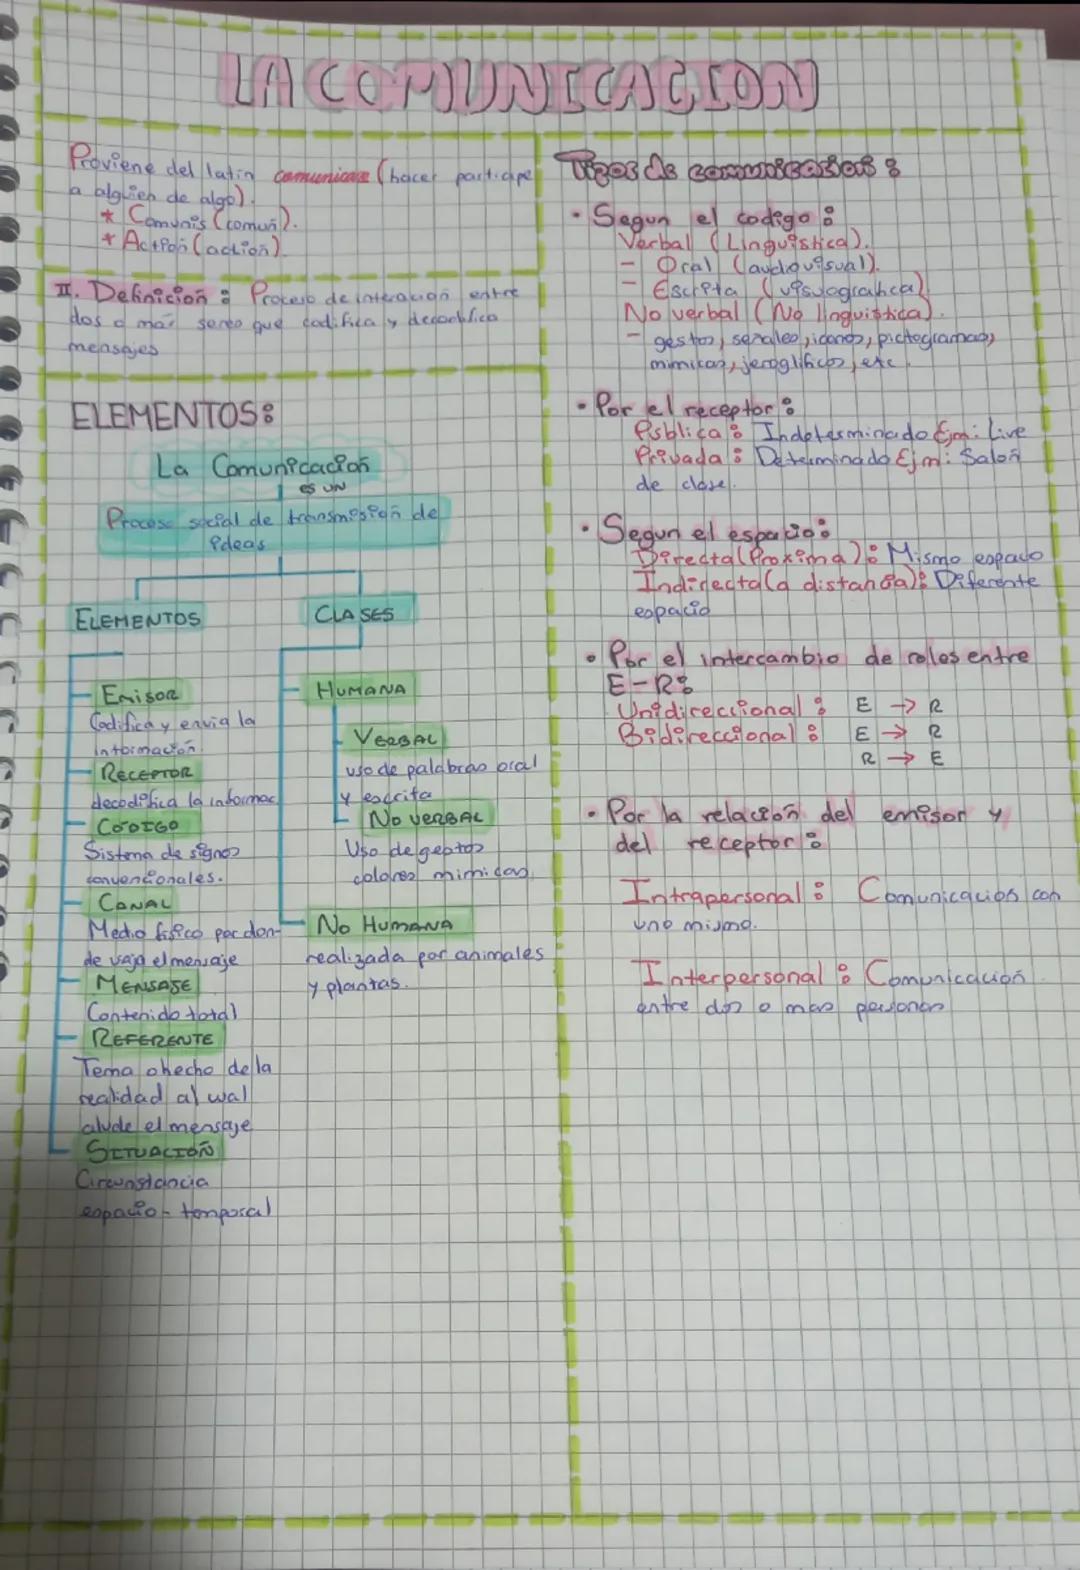 LA COMUNICACION
Proviene del latin comunicare (hacer participe
a alguien de algo).
* Comunis (comun).
* Action (action).
II. Definicion: Proceso de interacion entre
dos o mas seres que codifica y decodifica
mensajes
ELEMENTOS:
La Comunicacion
ES UN
Proceso social de transmision de
ideas
ELEMENTOS
EMISOR
Codifica y envia la
informacion.
RECEPTOR
decodifica la informac
CODIGO
Sistema de signos
convencionales.
CANAL
Medio fisico por don-
de viaja el mensaje
MENSAJE
Contenido total
REFERENTE
Tema o hecho de la
realidad al cual
alude el mensaje
SITUACION
Circunstancia
espacio - temporal
CLASES
HUMANA
VERBAL
uso de palabras oral
y escrita
NO VERBAL
Uso de gestos
colores mimicas.
NO HUMANA
realizada por animales
y plantas.
Tipos de comunicacion:
• Segun el codigo:
Verbal (Linguistica).
- Oral (audiovisual).
- Escrita (visuografica)
No verbal (No linguistica).
- gestos, señales, iconos, pictogramas,
mimicas, jeroglificos, etc.
• Por el receptor:
Publica: Indeterminado Ejm: Live
Privada: Determinado Ejm: Salon
de clase.
• Segun el espacio:
Directa (Proxima): Mismo espacio
Indirecta (a distancia): Diferente
espacio
• Por el intercambio de roles entre
E-R:
Unidireccional: E → R
Bidireccional: E → R
R → E
• Por la relacion del emisor y
del receptor:
Intrapersonal: Comunicacion con
uno mismo.
Interpersonal: Comunicacion
entre dos o mas personas